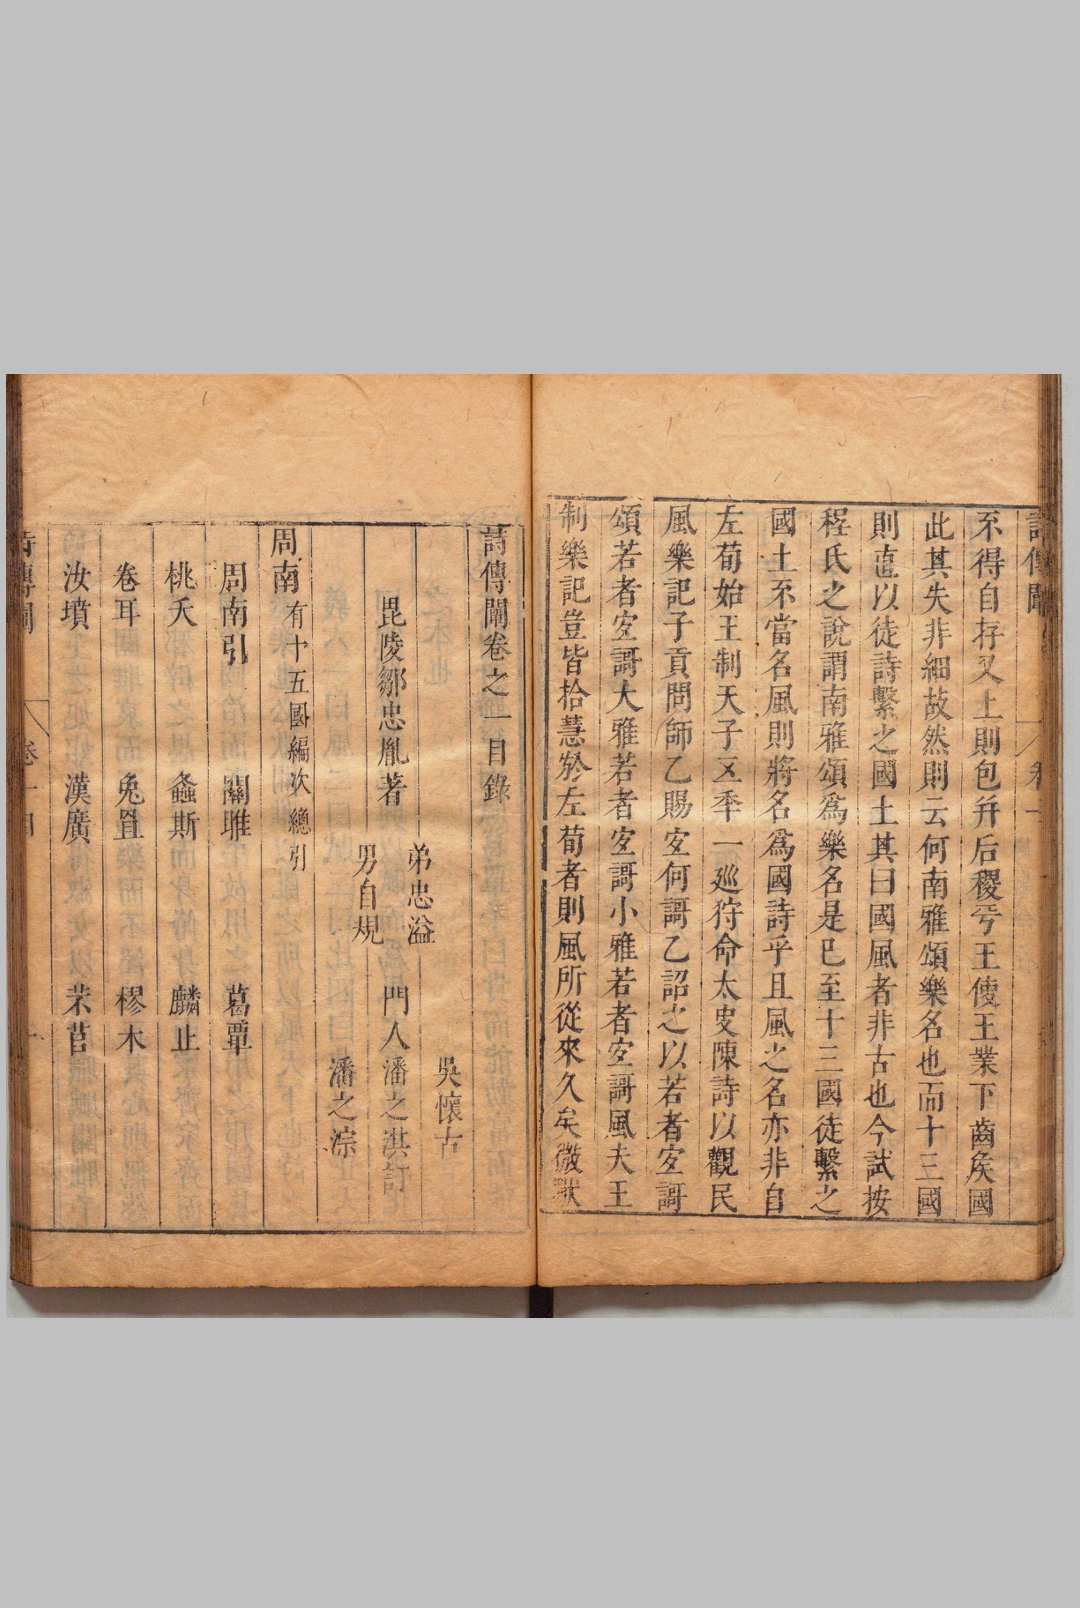 詩傳闡
卷一
不得自存又上則包弁后稷兮王使王業下齒矦國
此其失非細故然則云何南雅頌樂名也而十三國
則直以徒詩繫之國土其曰國風者非古也今試按
程氏之說謂南雅頌為樂名是已至十三國徒繫之
國土不當名風則將名為國詩乎且風之名亦非自
左荀始王制天子五年一巡狩命太史陳詩以觀民
風樂記子貢問師乙賜宜何謌乙詔之以若者宜謌
頌若者宜謌大雅若者宜謌小雅若者宜謌風夫王
制樂記豈皆拾慧於左荀者則風所從來久矣微獸
詩傳闡卷之一目錄
弟忠溢 吳懷古
毘陵鄒忠胤著 門人潘之淇訂
男自規 潘之淙
周南 有十五國編次總引
周南引 關雎 葛覃
桃夭 螽斯 麟止
卷耳 兔罝 樛木
汝墳 漢廣 芣苢
詩傳闡 卷一目 一